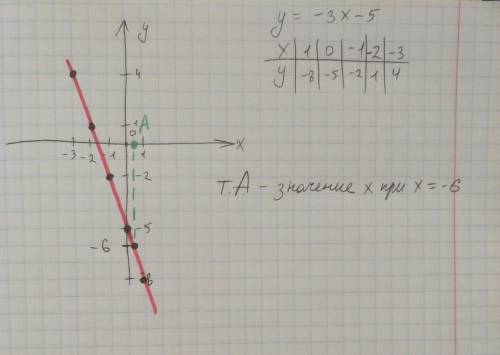 y = -3x-5
x | 1 | 0 | -1 | -2 | -3
y | -8 | -5 | -2 | 1 | 4
т. А - значение x при x = -6
y
4
1
A
0
x
-3 -2 -1 1
-2
-5
-6
-8